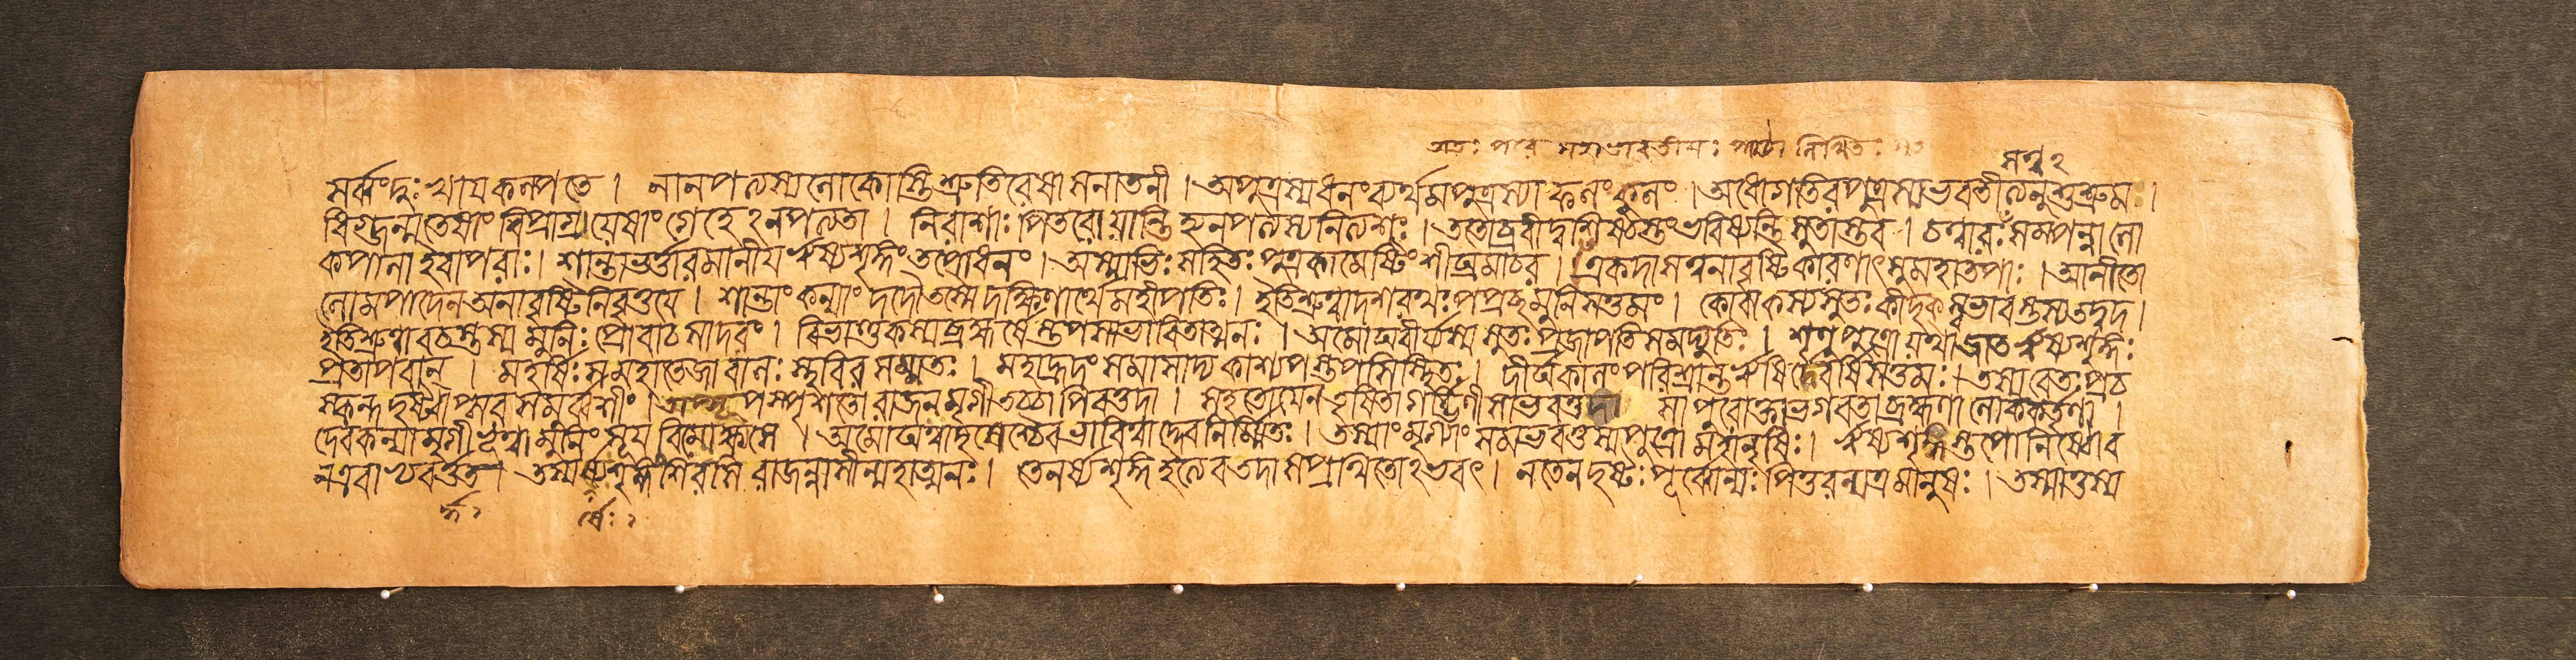 অতঃ পরং মহাভারতীয়ঃ পাঠো লিখিতঃ
মন্যু২
সর্ব্বং দুঃখায় কল্পতে । নানপত্যস্য লোকোস্তি শ্রুতিরেষা সনাতনী । অপুত্রস্য ধনং ব্যর্থমপুত্রস্যাফলং কুলং । অধোগতিরপুত্রস্য ভবতীত্যনুশুশ্রুমঃ ।
ধিগ্জন্ম তেষাং বিপ্রাগ্র্য যেষাং গেহেঽনপত্যতা । নিরাশাঃ পিতরো যান্তি হ্যনপত্যস্য নিত্যশঃ । ততোব্রবীদ্বশিষ্ঠস্তং ভবিষ্যন্তি সুতাস্তব । চত্বারঃ সমপন্না লো
কপালা ইবাপরাঃ । শান্তাভর্ত্তারমানীয় ঋষ্যশৃঙ্গং তপোধনং । অস্মাভিঃ সহিতঃ পুত্রকামেষ্টিং শীঘ্রমাচর । একদা মত্বনাবৃষ্টিকারণাৎ সুমহাতপাঃ । আনীতো
লোমপাদেন অনাবৃষ্টিনিবৃত্তয়ে । শান্তাং কন্যাং দদৌ তস্মৈ দক্ষিণার্থে মহীপতিঃ । ইতি শ্রুত্বা দশরথঃ পপ্রচ্ছ মুনিসত্তমং । কো বা কস্য সুতঃ কীদৃক্ স্বভাবস্তস্য তদ্বদ ।
ইতি শ্রুত্বা বচস্তস্য মুনিঃ প্রোবাচ সাদরং । বিভাণ্ডকস্য ব্রহ্মর্ষেস্তপসা ভাবিতাত্মনঃ । অমোঘবীর্য্যস্য সুতঃ প্রজাপতিসমদ্যুতিঃ । শৃণু পুত্রো যথা জাত ঋষ্যশৃঙ্গঃ
প্রতাপবান্ । মহর্ষিঃ সুমহাতেজা বালঃ স্থবিরসম্মতঃ । মহাহ্রদং সমাসাদ্য কাশ্যপস্তপসি স্থিতঃ । দীর্ঘকালং পরিশ্রান্ত ঋষির্দেবর্ষিসত্তমঃ । তস্য রেতঃ প্রচ
স্কন্দ দৃষ্ট্বাপ্সরসমুর্ব্বশীং । অপ্সূপস্পৃশতো রাজন্ মৃগী তচ্চাপিবত্তদা । সহ তোয়েন তৃষিতা গর্ভিণী সাভবত্তদা সা পুরোক্তা ভগবতা ব্রহ্মণা লোককর্ত্তৃণা ।
দেবকন্যা মৃগী ভূত্বা মুনিং সূয় বিমোক্ষ্যসে । অমোঘত্বাদ্বিধেশ্চৈব ভাবিত্বাদ্দেবনির্ম্মিতঃ । তস্যাং মৃগ্যাং সমভবত্তস্য পুত্রো মহানৃষিঃ । ঋষ্যশৃঙ্গস্তপোনিষ্ঠো ব
ন এবাথ বর্ত্তত । তস্যর্ষ্যশৃঙ্গং শিরসি রাজন্নাসীন্মহাত্মনঃ । তেনর্ষ্যশৃঙ্গ ইত্যেব তদা স প্রথিতোঽভবৎ । ন তেন দৃষ্টঃ পূর্ব্বোন্যঃ পিতুরন্যত্র মানুষঃ । তস্মাত্তস্য
র্ত্ত র্ষেঃ